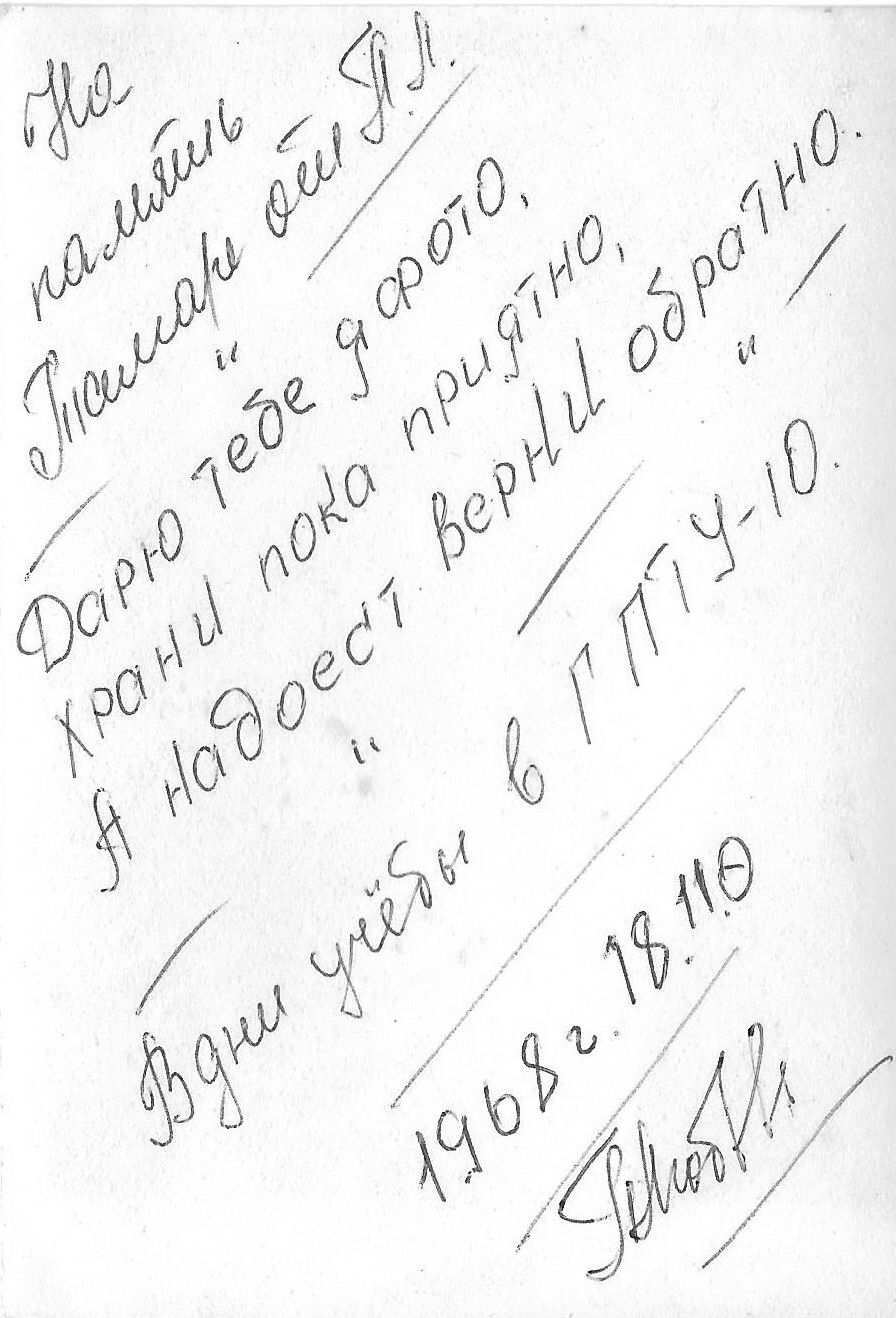 На
память
Тамаре от П.Л.
"
Дарю тебе я фото,
храни пока приятно,
А надоест верни обратно.
" "
В дни учёбы в ГПТУ-10.
1968 г. 18.11.